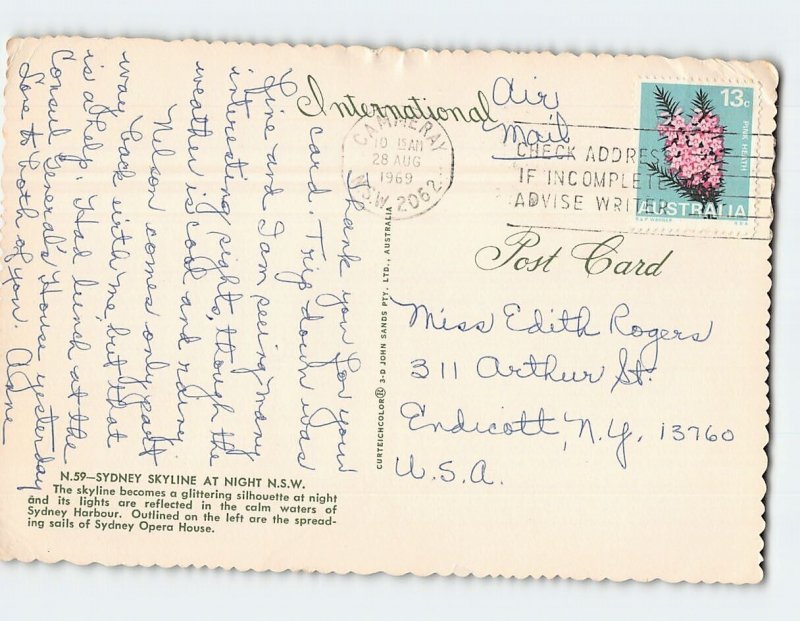 International
Air
Mail
CAMMERAY
10 15AM
28 AUG
1969
N.S.W. 2062
CHECK ADDRESS
IF INCOMPLETE
ADVISE WRITER
13c
PINK HEATH
AUSTRALIA
Post Card
Miss Edith Rogers
311 Arthur St.
Endicott, N.Y. 13760
U.S.A.
Thank you for your
card. Trip down was
fine and I am seeing many
interesting sights, though the
weather is cool and rainy.
Nelson comes only part
way back with me, but that
is a help. Had lunch at the
Consul General's House yesterday
Love to both of you.
CURTEICHCOLOR® 3-D JOHN SANDS PTY. LTD., AUSTRALIA
N.59—SYDNEY SKYLINE AT NIGHT N.S.W.
The skyline becomes a glittering silhouette at night
and its lights are reflected in the calm waters of
Sydney Harbour. Outlined on the left are the spread-
ing sails of Sydney Opera House.